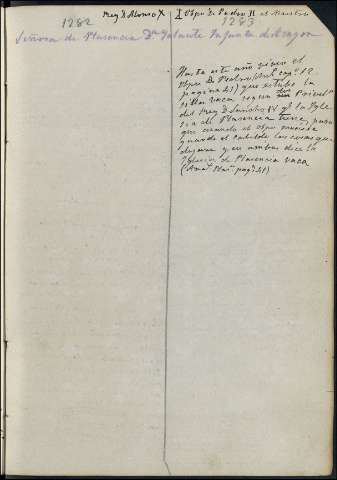 Rey D. Alonso X Obpo D. Pedro II el Maestro
1282 1283
Señora de Plasencia Dª Violante Infanta de Aragon
Hasta este año vivio el
Obpo D. Pedro
pagina 41) y que estubo la
silla vaca segun Privilº
del Rey D. Sancho IV qe la Igle
sia de Plasencia tiene, para
que cuando el obpo muriese
guarde el Cabildo las cosas que
dejare y en nombre dice la
Iglesia de Plasencia vaca
(Anal. Plaª. pagª 41)